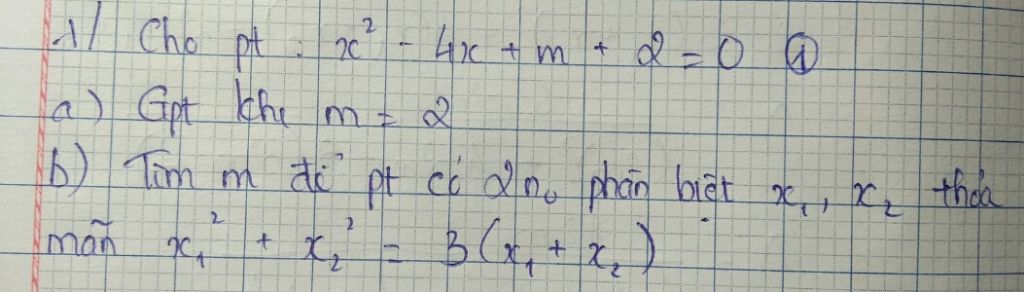 1/ Cho pt : x² - 4x + m + 2 = 0 ①
a) Gpt khi m = 2
b) Tìm m để pt có 2 n₀ phân biệt x₁, x₂ thỏa
mãn x₁² + x₂² = 3(x₁ + x₂)